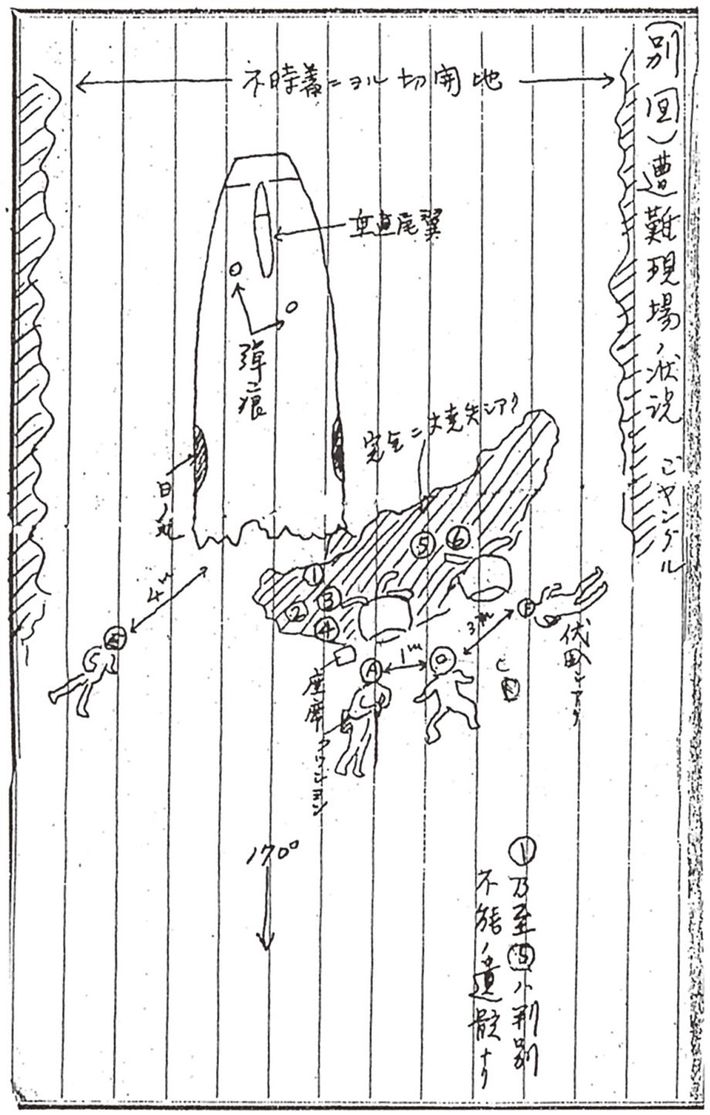 (別図)遭難現場ノ状況 ジャングル
不時着ニヨル切開地
垂直尾翼
弾痕
完全ニ焼失シアリ
日ノ丸
⑤ ⑥
①
② ③
④
4m
3m
1m
A
座席クッション
170°
①乃至⑤ハ判別
不能ノ遺骸ナリ